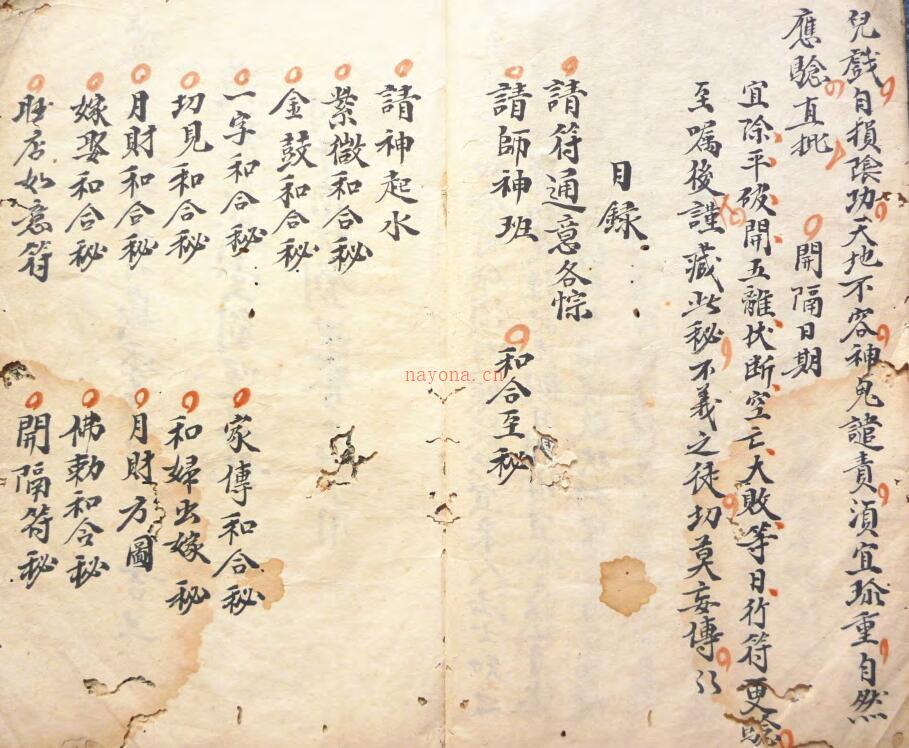 兒戲自損陰功天地不容神鬼譴責須宜珍重自然
應驗直批
開隔日期
宜除平破開五離伏断空亡大敗等日行符更驗
至嘱後謹藏此秘不義之徒切莫妄傳
目録
請符通意各悰
請師神班
和合至秘
請神起水
紫微和合秘
金鼓和合秘
一字和合秘
家傳和合秘
切見和合秘
和婦出嫁秘
月財和合秘
月財方圖
嫁娶和合秘
佛勅和合秘
店如意符
開隔符秘
nayona.cn